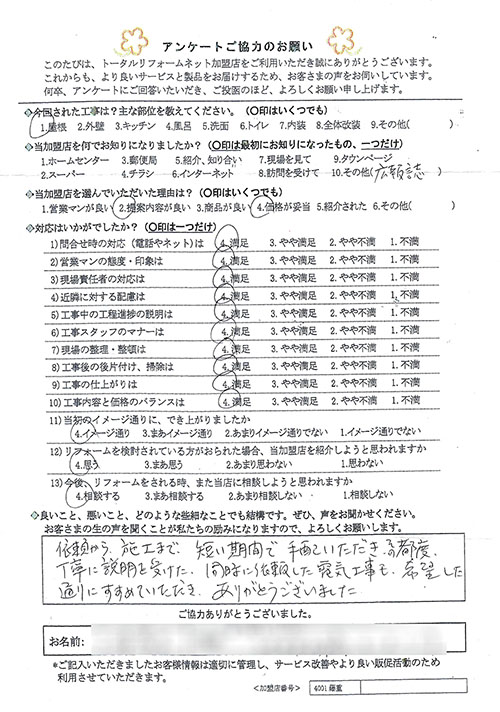 アンケートご協力のお願い
このたびは、トータルリフォームネット加盟店をご利用いただき誠にありがとうございます。
これからも、より良いサービスと製品をお届けするため、お客さまの声をお伺いしています。
何卒、アンケートにご回答いただき、ご投函のほど、よろしくお願い申し上げます。
◆今回された工事は?主な部位を教えてください。(○印はいくつでも)
1.屋根 2.外壁 3.キッチン 4.風呂 5.洗面 6.トイレ 7.内装 8.全体改装 9.その他( )
◆当加盟店を何でお知りになりましたか?(○印は最初にお知りになったもの、一つだけ)
1.ホームセンター 3.郵便局 5.紹介、知り合い 7.現場を見て 9.タウンページ
2.スーパー 4.チラシ 6.インターネット 8.訪問を受けて 10.その他(広報誌)
◆当加盟店を選んでいただいた理由は?(○印はいくつでも)
1.営業マンが良い 2.提案内容が良い 3.商品が良い 4.価格が妥当 5.紹介された 6.その他( )
◆対応はいかがでしたか?(○印は一つだけ)
1)問合せ時の対応(電話やネット)は 4.満足 3.やや満足 2.やや不満 1.不満
2)営業マンの態度・印象は 4.満足 3.やや満足 2.やや不満 1.不満
3)現場責任者の対応は 4.満足 3.やや満足 2.やや不満 1.不満
4)近隣に対する配慮は 4.満足 3.やや満足 2.やや不満 1.不満
5)工事中の工程進捗の説明は 4.満足 3.やや満足 2.やや不満 1.不満
6)工事スタッフのマナーは 4.満足 3.やや満足 2.やや不満 1.不満
7)現場の整理・整頓は 4.満足 3.やや満足 2.やや不満 1.不満
8)工事後の後片付け、掃除は 4.満足 3.やや満足 2.やや不満 1.不満
9)工事の仕上がりは 4.満足 3.やや満足 2.やや不満 1.不満
10)工事内容と価格のバランスは 4.満足 3.やや満足 2.やや不満 1.不満
11)当初のイメージ通りに、でき上がりましたか
4.イメージ通り 3.まあイメージ通り 2.あまりイメージ通りでない 1.イメージ通りでない
12)リフォームを検討されている方がおられた場合、当加盟店を紹介しようと思われますか
4.思う 3.まあ思う 2.あまり思わない 1.思わない
13)今後、リフォームをされる時、また当店に相談しようと思われますか
4.相談する 3.まあ相談する 2.あまり相談しない 1.相談しない
◆良いこと、悪いこと、どのような些細なことでも結構です。ぜひ、声をお聞かせください。
お客さまの生の声を聞くことが私たちの励みになりますので、よろしくお願いします。
依頼から施工まで 短い期間で手配ていただき、その都度、
丁寧に説明を受けた。同時に依頼した電気工事も、希望した
通りにすすめていただき、ありがとうございました
ご協力ありがとうございました。
お名前:
*ご記入いただきましたお客様情報は適切に管理し、サービス改善やより良い販促活動のため
利用させていただきます。
<加盟店番号> 4001 藤重